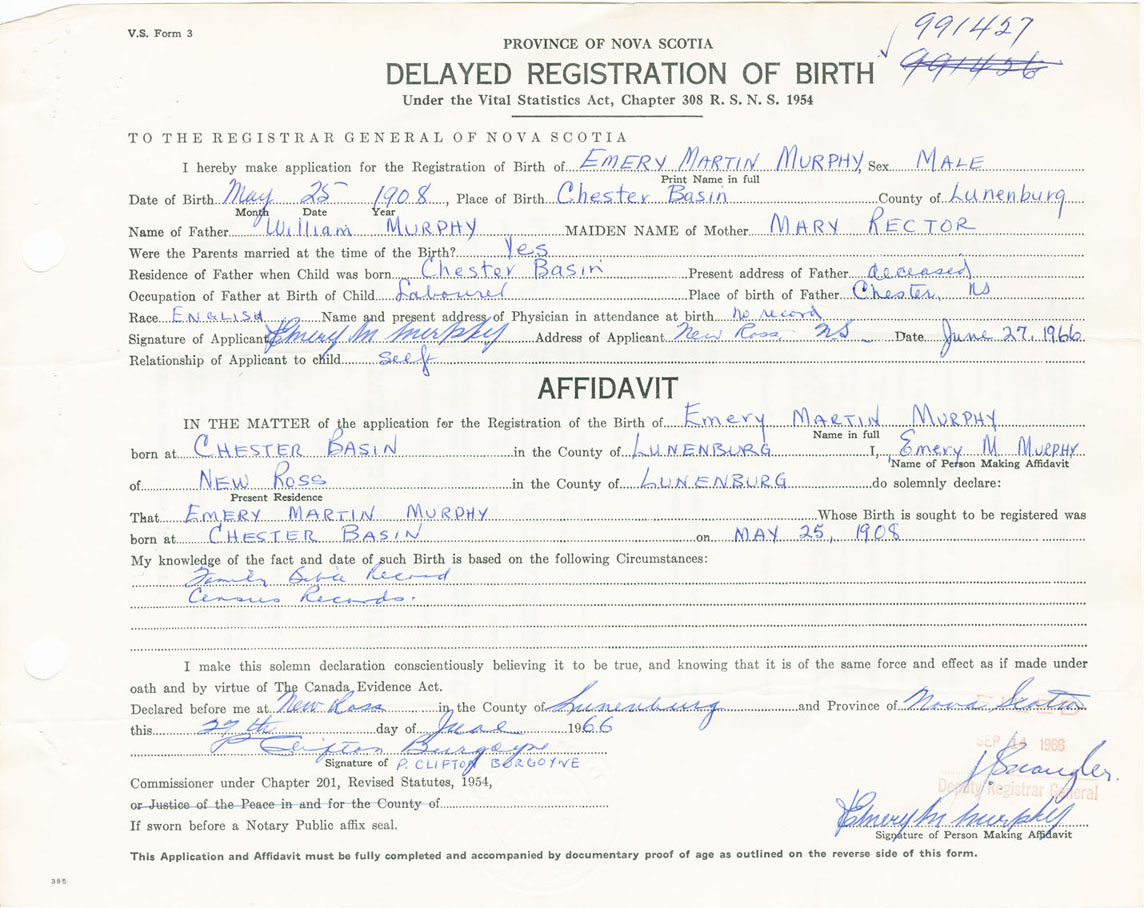 V.S. Form 3
991427
991426
PROVINCE OF NOVA SCOTIA
DELAYED REGISTRATION OF BIRTH
Under the Vital Statistics Act, Chapter 308 R. S. N. S. 1954
TO THE REGISTRAR GENERAL OF NOVA SCOTIA
I hereby make application for the Registration of Birth of EMERY MARTIN MURPHY, Sex MALE
Print Name in full
Date of Birth May 25 1908, Place of Birth Chester Basin County of Lunenburg
Month Date Year
Name of Father William MURPHY MAIDEN NAME of Mother MARY RECTOR
Were the Parents married at the time of the Birth? Yes
Residence of Father when Child was born Chester Basin Present address of Father deceased
Occupation of Father at Birth of Child Labourer Place of birth of Father Chester, NS
Race ENGLISH Name and present address of Physician in attendance at birth no record
Signature of Applicant Emery M Murphy Address of Applicant New Ross NS Date June 27, 1966
Relationship of Applicant to child self
AFFIDAVIT
IN THE MATTER of the application for the Registration of the Birth of Emery MARTIN MURPHY
Name in full
born at CHESTER BASIN in the County of LUNENBURG I, Emery M MURPHY
Name of Person Making Affidavit
of NEW ROSS in the County of LUNENBURG do solemnly declare:
Present Residence
That EMERY MARTIN MURPHY Whose Birth is sought to be registered was
born at CHESTER BASIN on MAY 25, 1908
My knowledge of the fact and date of such Birth is based on the following Circumstances:
Family Bible Record
Census Records.
I make this solemn declaration conscientiously believing it to be true, and knowing that it is of the same force and effect as if made under
oath and by virtue of The Canada Evidence Act.
Declared before me at New Ross in the County of Lunenburg and Province of Nova Scotia
this 27th day of June 1966
P Clifton Burgoyne
SEP 1966
Signature of P. CLIFTON BURGOYNE
Commissioner under Chapter 201, Revised Statutes, 1954,
Deputy Registrar General
or Justice of the Peace in and for the County of
Emery M Murphy
If sworn before a Notary Public affix seal.
Signature of Person Making Affidavit
This Application and Affidavit must be fully completed and accompanied by documentary proof of age as outlined on the reverse side of this form.
385